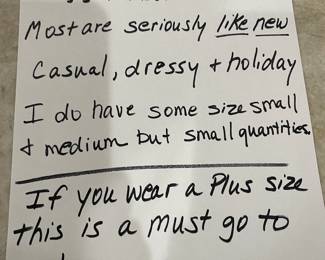 Most are seriously like new
Casual, dressy + holiday
I do have some size small
+ medium but small quantities.
If you wear a Plus size
this is a must go to